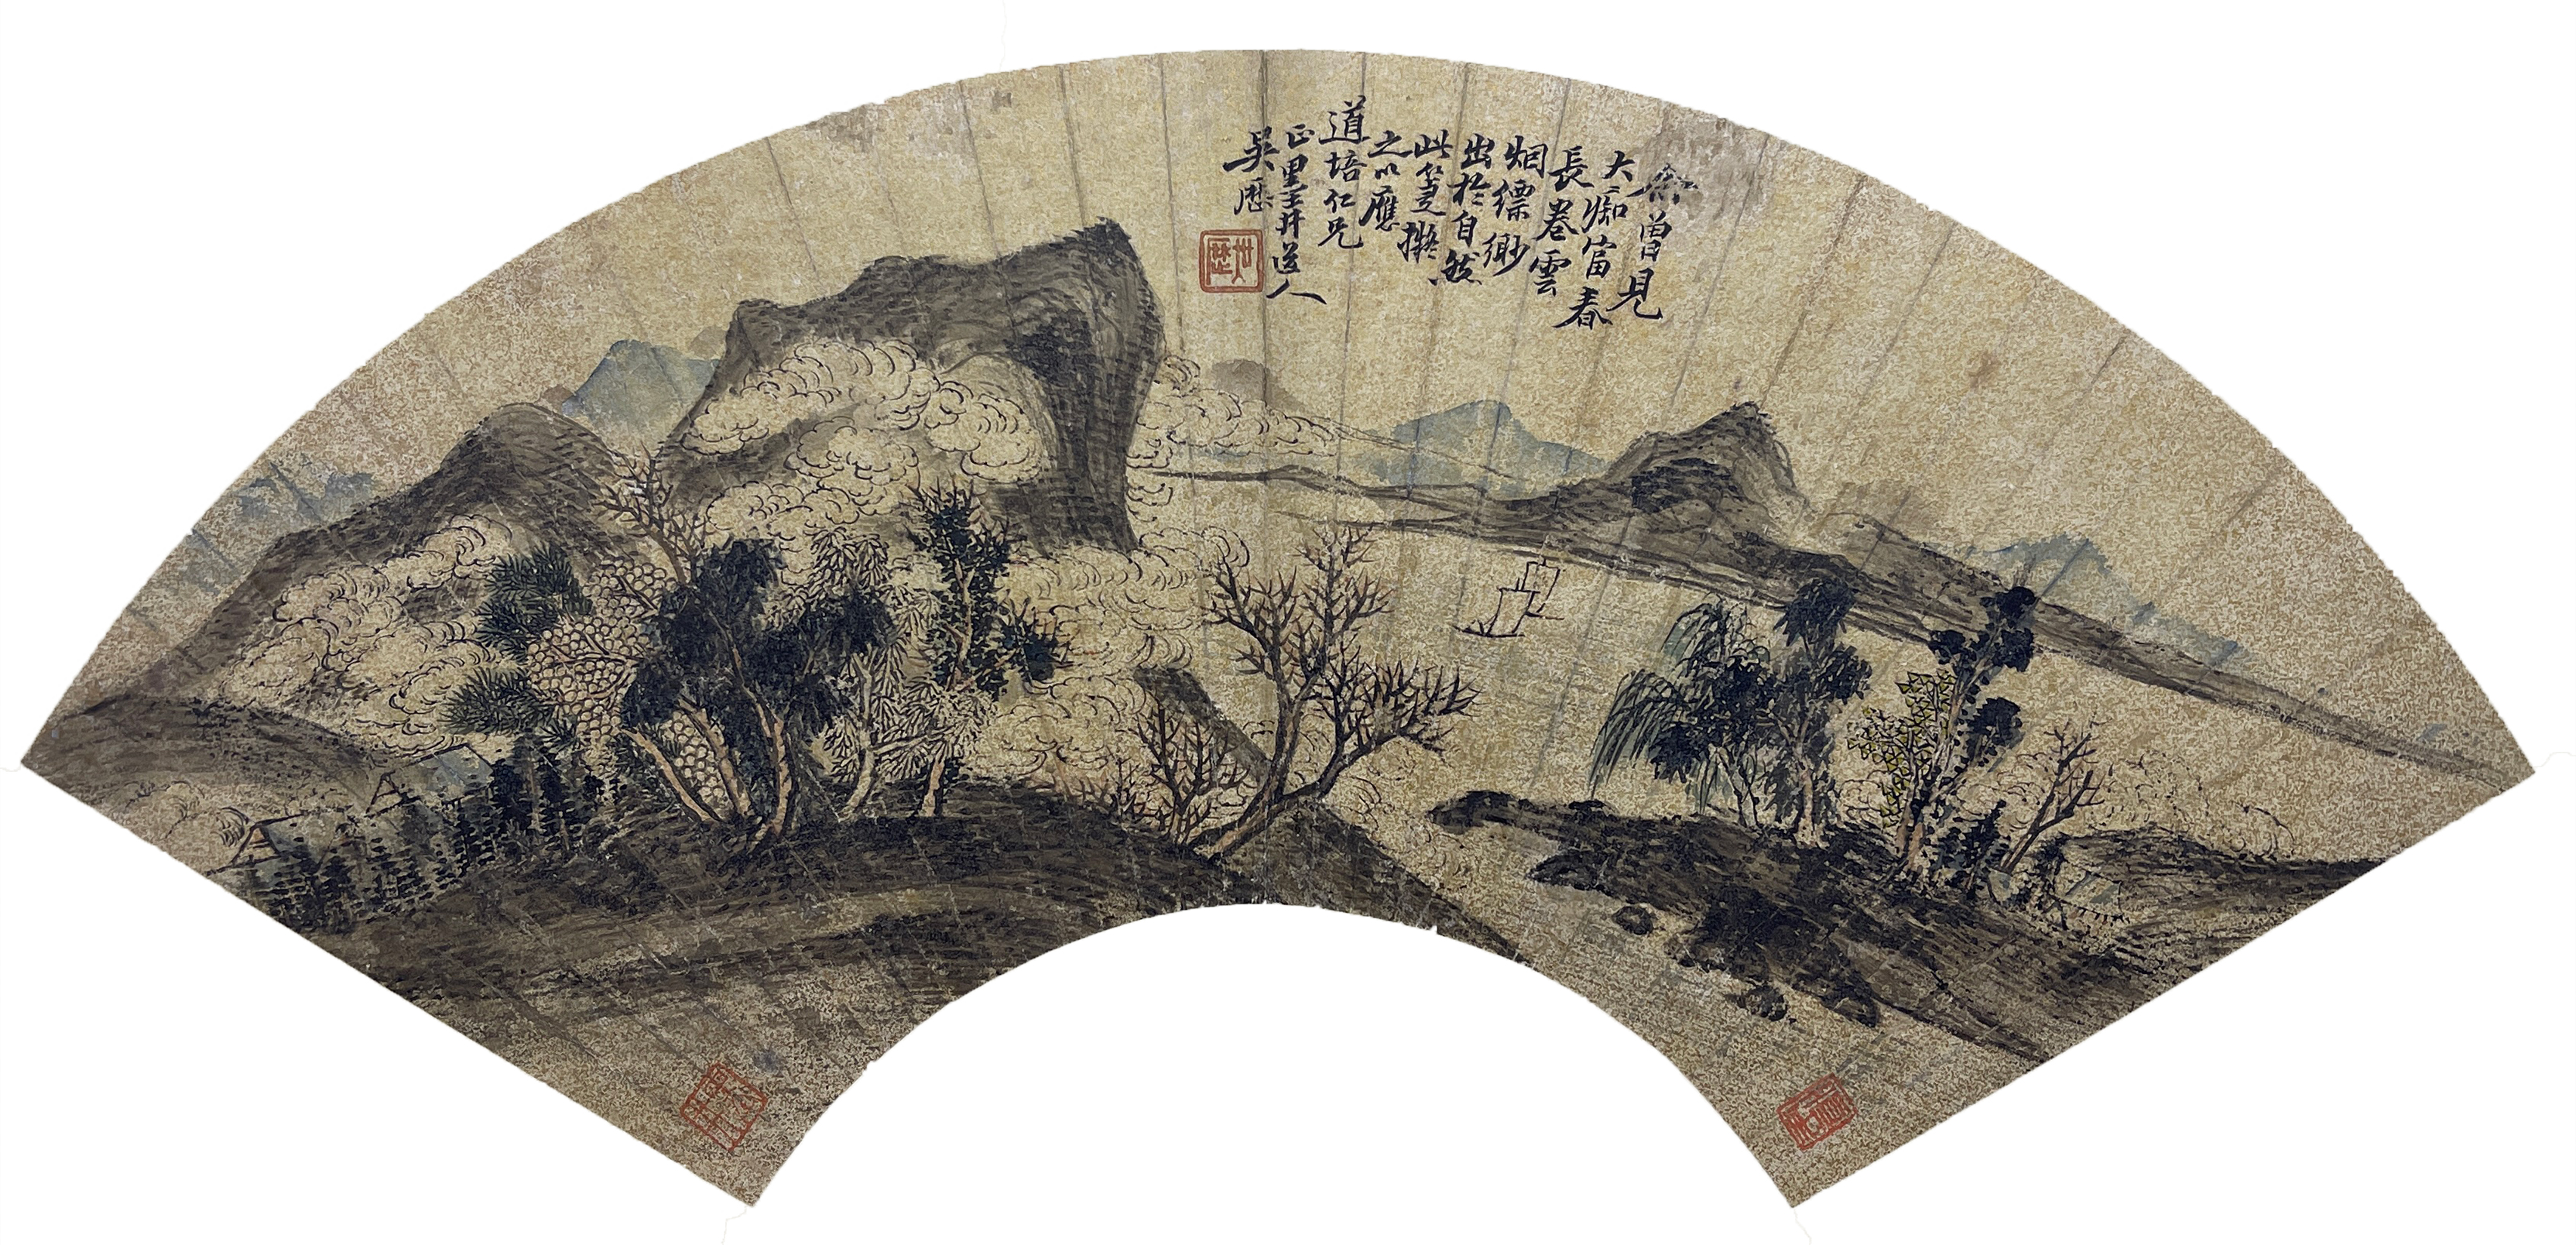 余曾見
大癡富春
長卷雲
烟縹緲
出於自然
此筆擬
之以應
道培仁兄
正墨井道人
吳歷